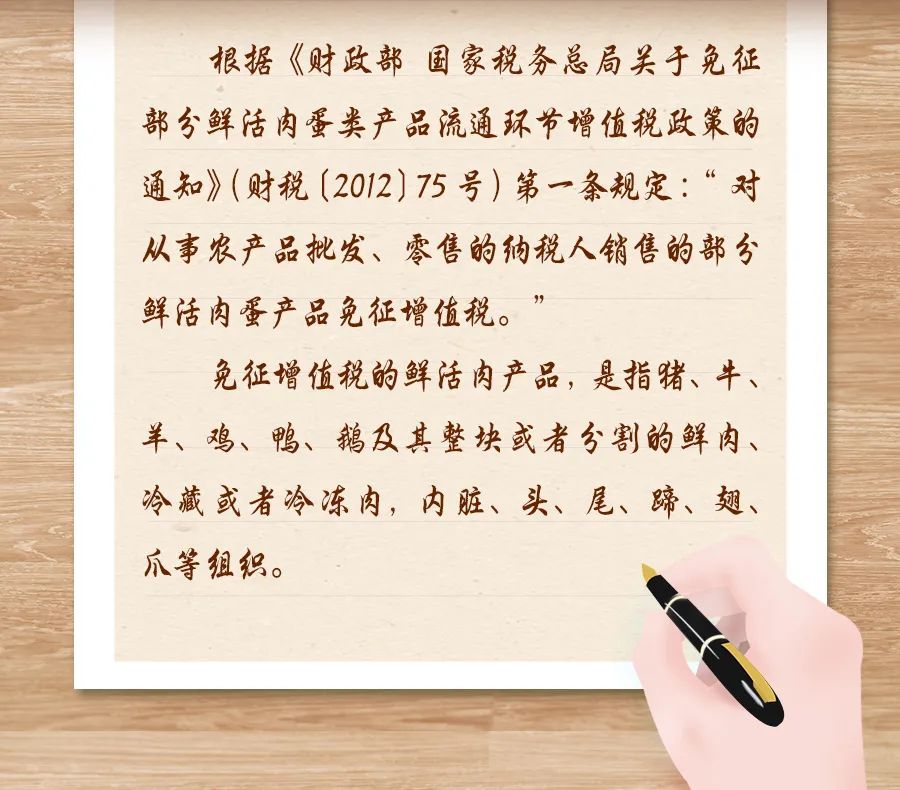 根据《财政部 国家税务总局关于免征
部分鲜活肉蛋类产品流通环节增值税政策的
通知》(财税〔2012〕75号)第一条规定:“对
从事农产品批发、零售的纳税人销售的部分
鲜活肉蛋产品免征增值税。”
免征增值税的鲜活肉产品,是指猪、牛、
羊、鸡、鸭、鹅及其整块或者分割的鲜肉、
冷藏或者冷冻肉,内脏、头、尾、蹄、翅、
爪等组织。